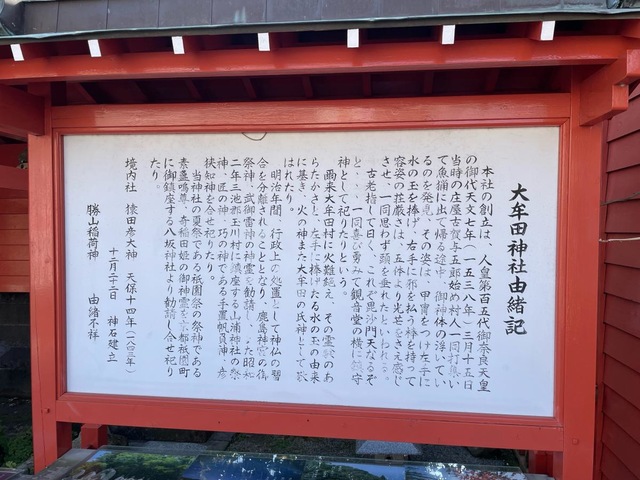 大牟田神社由緒記
本社の創立は、人皇第百五代御奈良天皇
の御代天文七年(一五三八年)三月十五日
当時の庄屋古賀与五郎始め村人一同打集い
て魚捕に出て帰る途中、御神体の浮いてい
るのを発見、その姿は、甲冑をつけ左手に
水の玉を捧げ、右手に邪を払う棒を持って
容姿の荘厳さは、五体より光芒をさえ感じ
させ、一同思わず頭を垂れたといわれる。
古老指して曰く、これぞ毘沙門天なるぞ
と、、、一同喜び勇みて観音堂の横に鎮守
神として祀りたりという。
爾来大牟田村に火難絶え、その霊験のあ
らたかさと、左手に捧げたる水の玉の由来
に基き、火の神また大牟田の氏神として敬
はれたり。
明治年間、行政上の処置として神仏の習
合を分離されることとなり、鹿島神宮の御
祭神、武御雷神の神霊を勧請し、また昭和
二年三池郡玉川村に鎮座する山浦神社の祭
神、匠の神、巧の神である手置帆負神、彦
狭知神を合せ祀れり。
当神社の夏祭である祇園の祭神である
素盞嗚尊、奇稲田姫の御神霊を京都祇園町
に御鎮座する八坂神社より勧請し合せ祀り
たり。
境内社 猿田彦大神 天保十四年(一八四三年)
十二月二十二日 神石建立
勝山稲荷神 由緒不祥